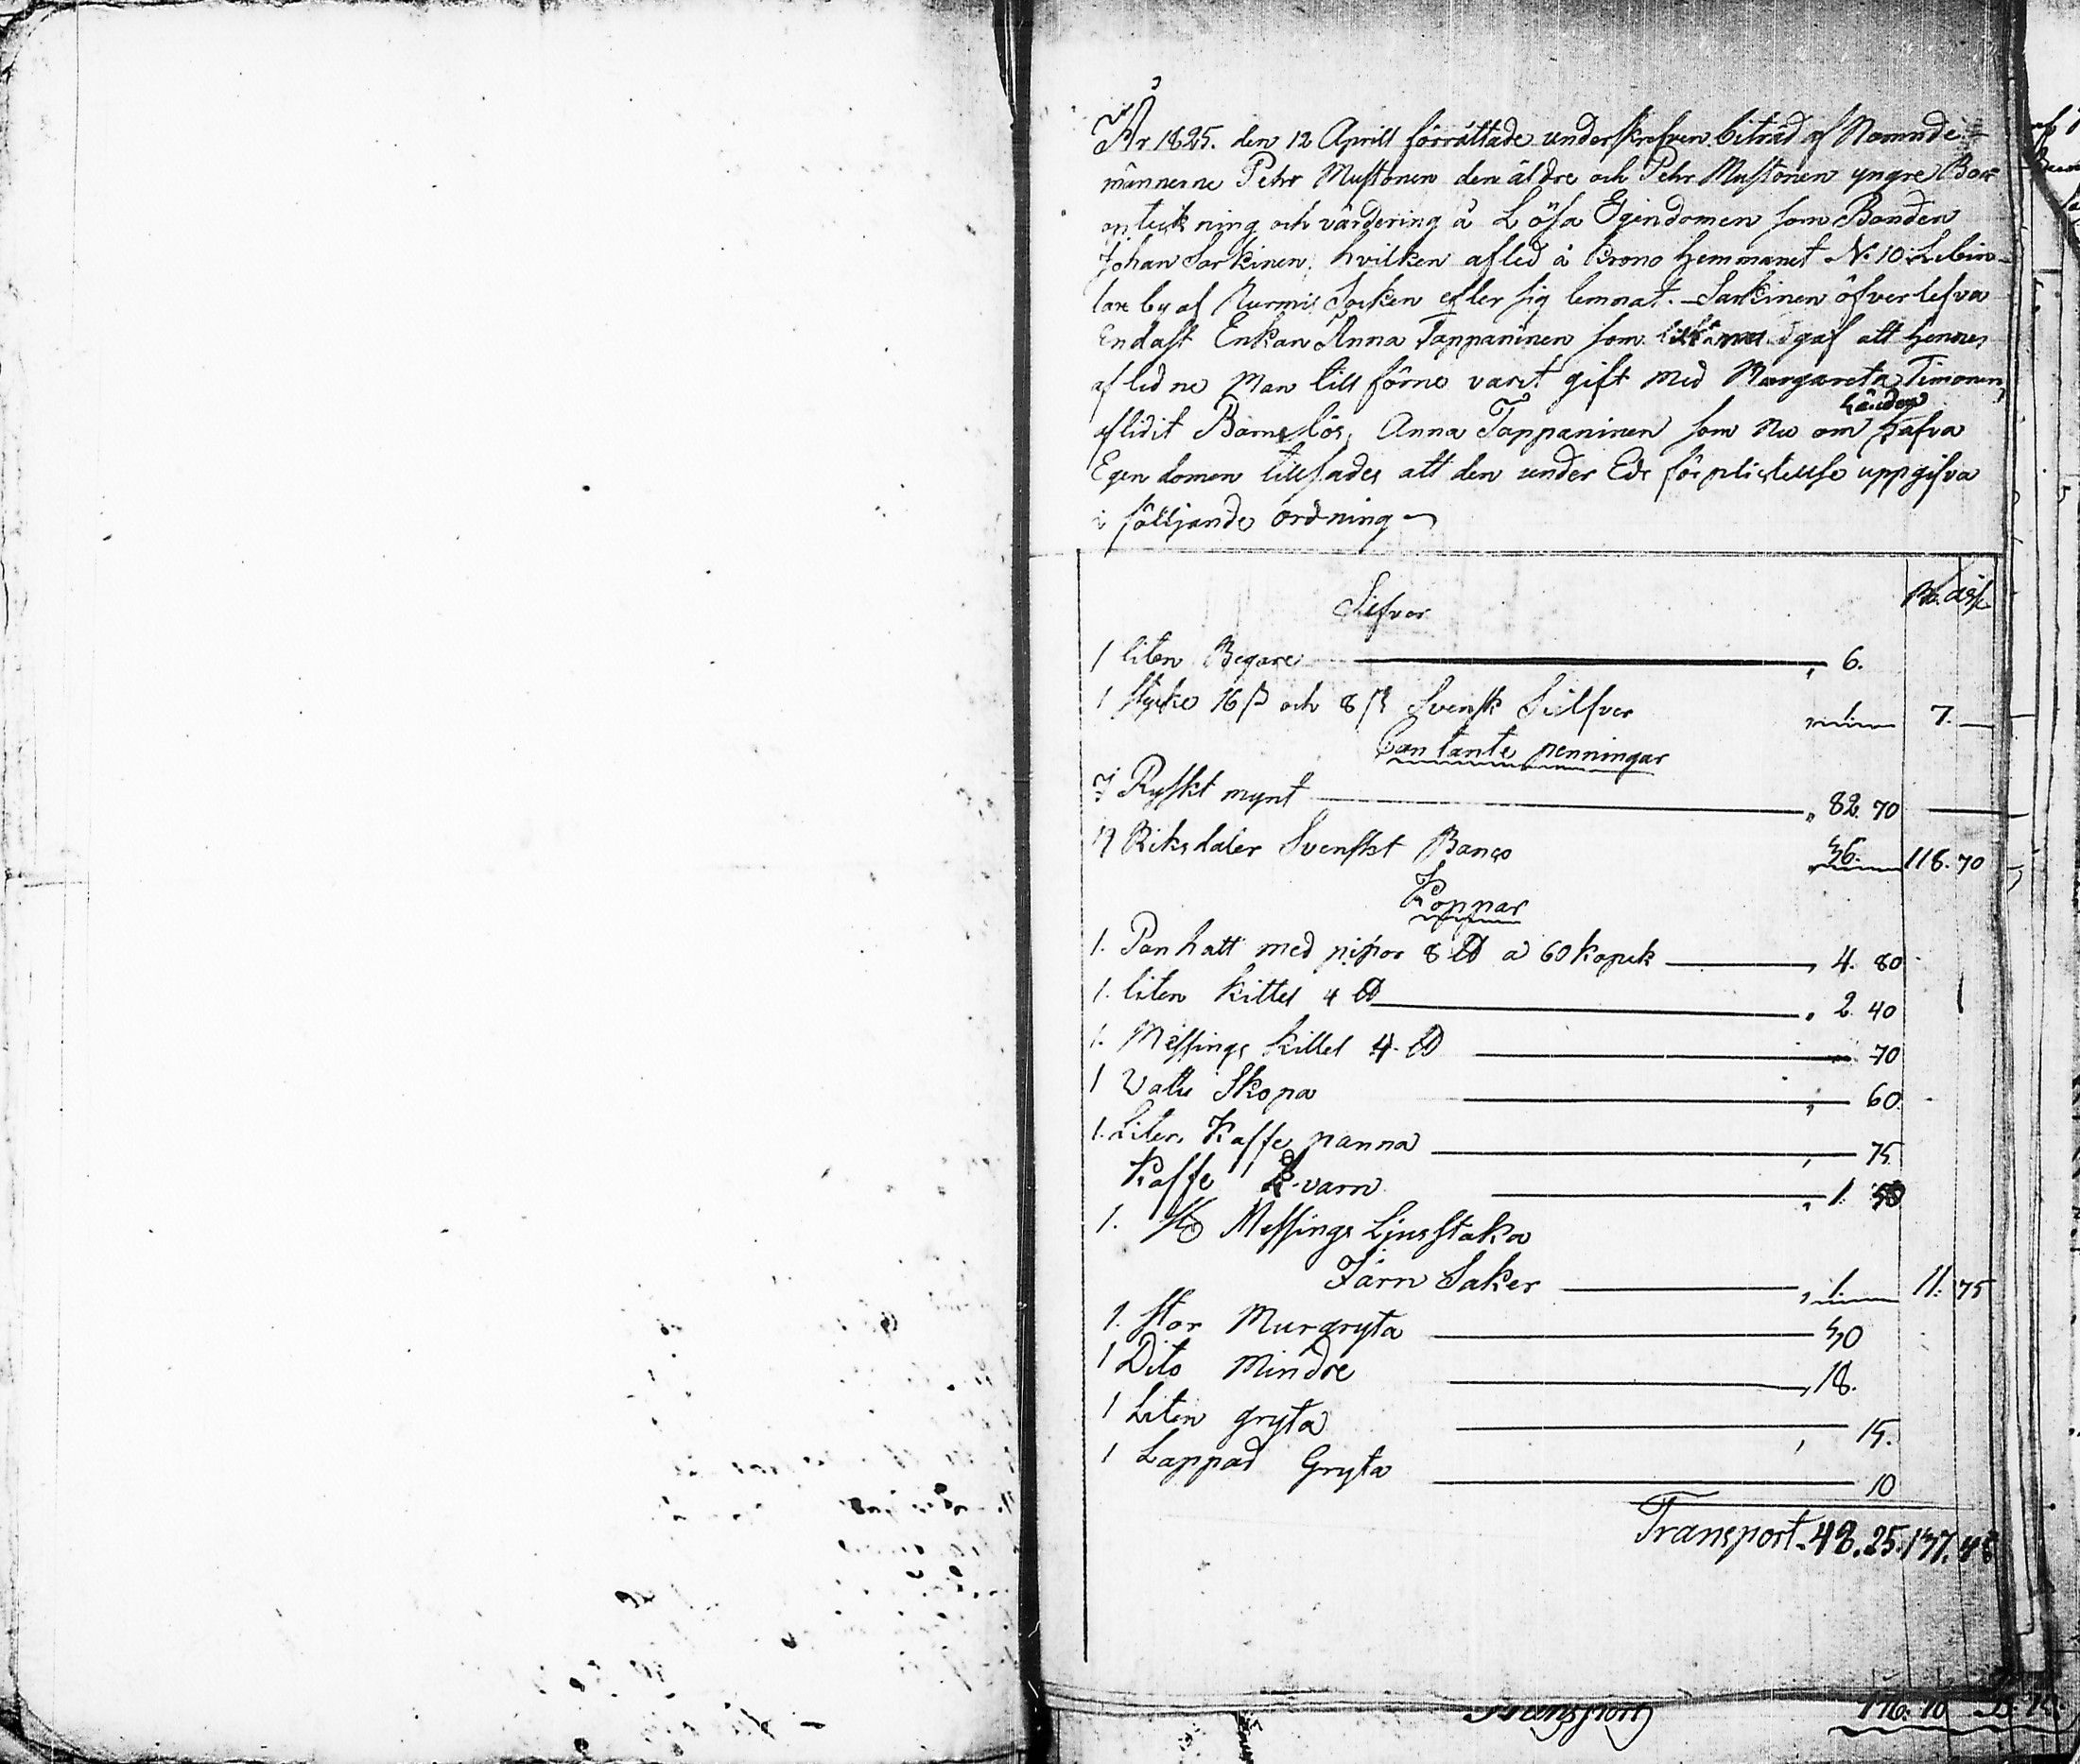 År 1825. den 12 Aprill förrättade underskrefven biträd af Nämnde-
männerne Pehr Mustonen den äldre och Pehr Mustonen yngre Bou
opteckning och värdering å Lösa Egindomen som Bonden
Johan Sarkinen, hvilken afled å krono hemmanet N: 10
by af Nurmis Socken efter sig lemnat. Sarkinen öfverlefva
Endast Enkan Anna Tappaninen som att hennes
aflidne Man till förne varit gift med Margareta Timonen,
händer
aflidit Barnslös, Anna Tappaninen som nu om hafva
Egendomen tillsades att den under Eds förplicktellse uppgifva
i fölljande ordning
Silfver
1 liten Begare 6.
1 stycke 16 ß och 8 ß Svensk Silfver 1. 7. —
Contante penningar
I Ryskt mynt 82. 70
Riksdaler Svenskt Banco 36. 118. 70
Koppar
1. Panhatt med pipor 8 ℔ a 60 kopek 4. 80
1. liten kittel 4 ℔ 2. 40
1. Messings kittel 4. ℔ 70
1 Vattu Skopa 60.
1. Liten Kaffe panna 75
Kaffe kvarn 1. 50
1. st Messings Ljusstaka
Järn Saker 1. 11. 75
1. stor Murgryta 30
1 Dito Mindre 18.
1 Liten gryta 15.
1 Lappad Gryta 10
Transport. 48. 25. 137. 45
Transport 176. 10